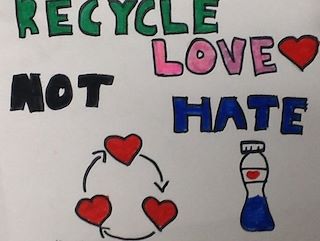 RECYCLE
LOVE
NOT
HATE